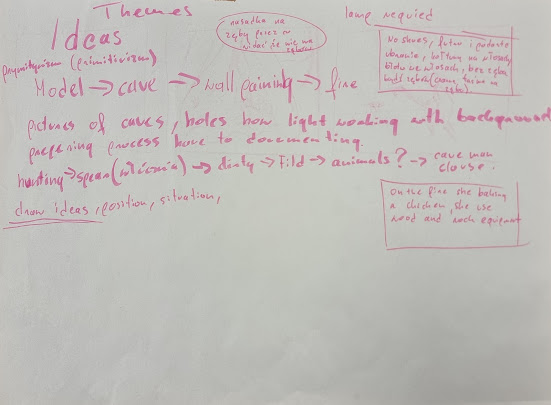 Themes
Ideas
prymitywizm (primitivizm)
Model → cave → wall paining → fire
nasadka na
zęby przez co
widać że nie ma
zębów
lamp requied
No shoes, futro i podarte
ubrania, kołtuny na włosach,
bez zęba
pictures of caves, holes how light working with background
prepering process have to documenting.
hunting → spear (włócznia) → dirty → Fild → animals? → cave man
clouse.
draw ideas, position, situation,
On the fire she baking
a chicken, she use
wood and equipment